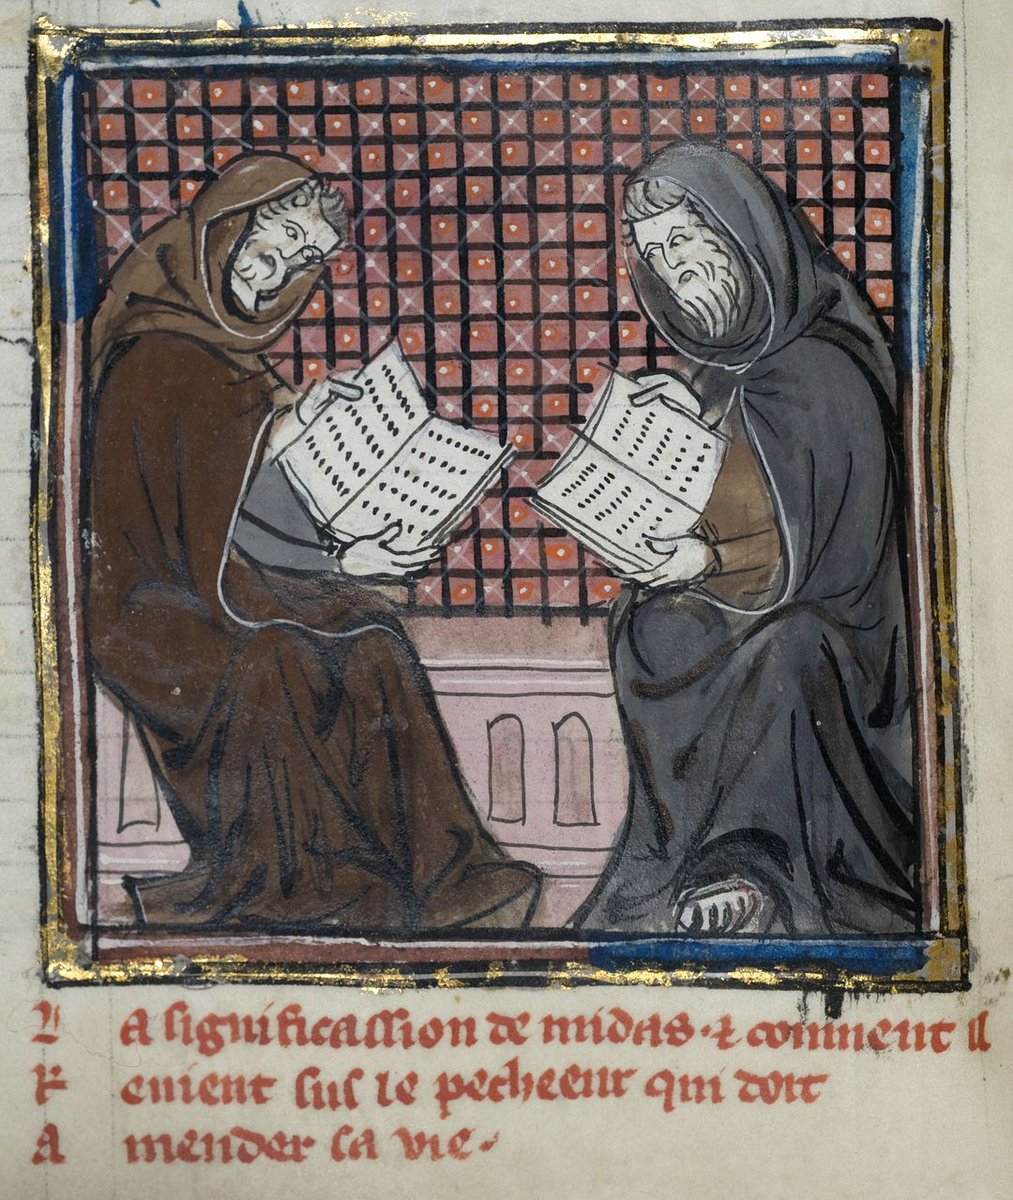 La significassion de midas · ⁊ comment il
Revient sus le pecheeur qui doit
Amender sa vie ·